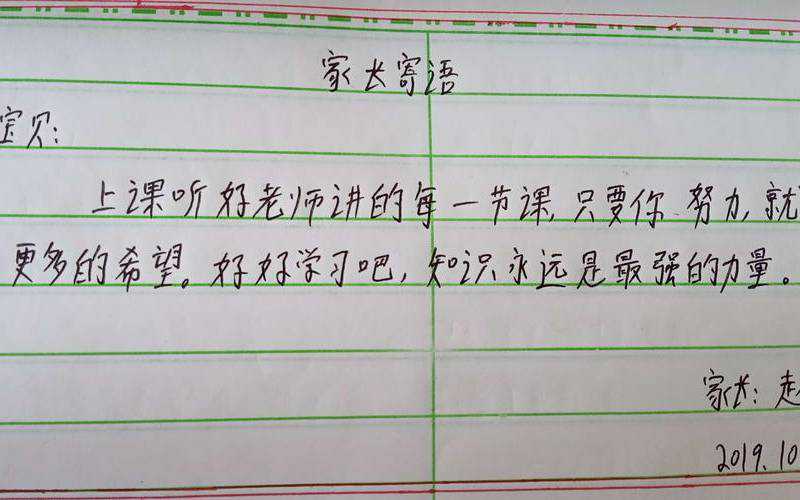 家长寄语
宝贝:
上课听好老师讲的每一节课,只要你努力,就
更多的希望。好好学习吧,知识永远是最强的力量。
家长:赵
2019.10